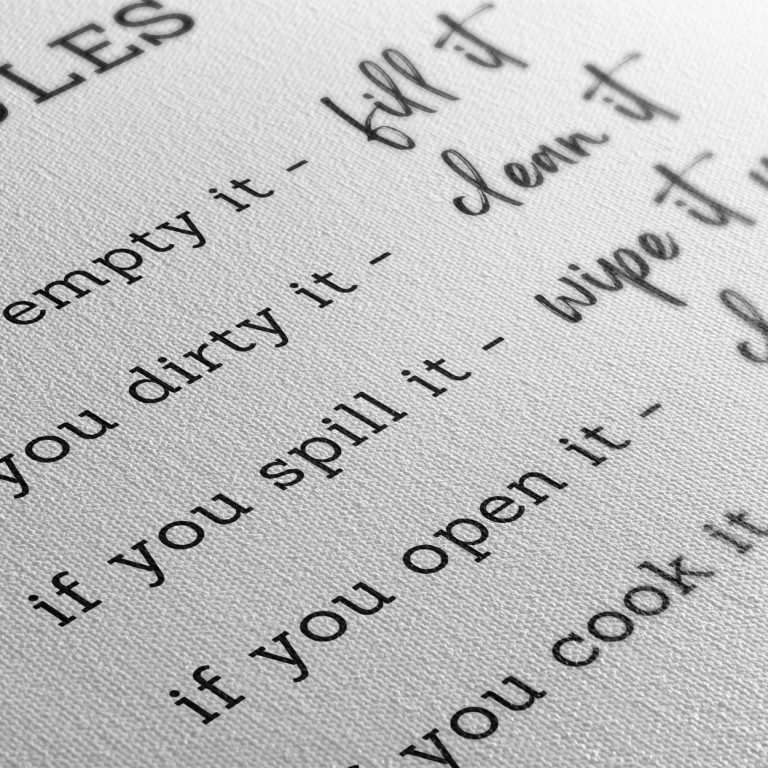 LES
empty it - fill it
you dirty it - clean it
if you spill it - wipe it
if you open it -
you cook it